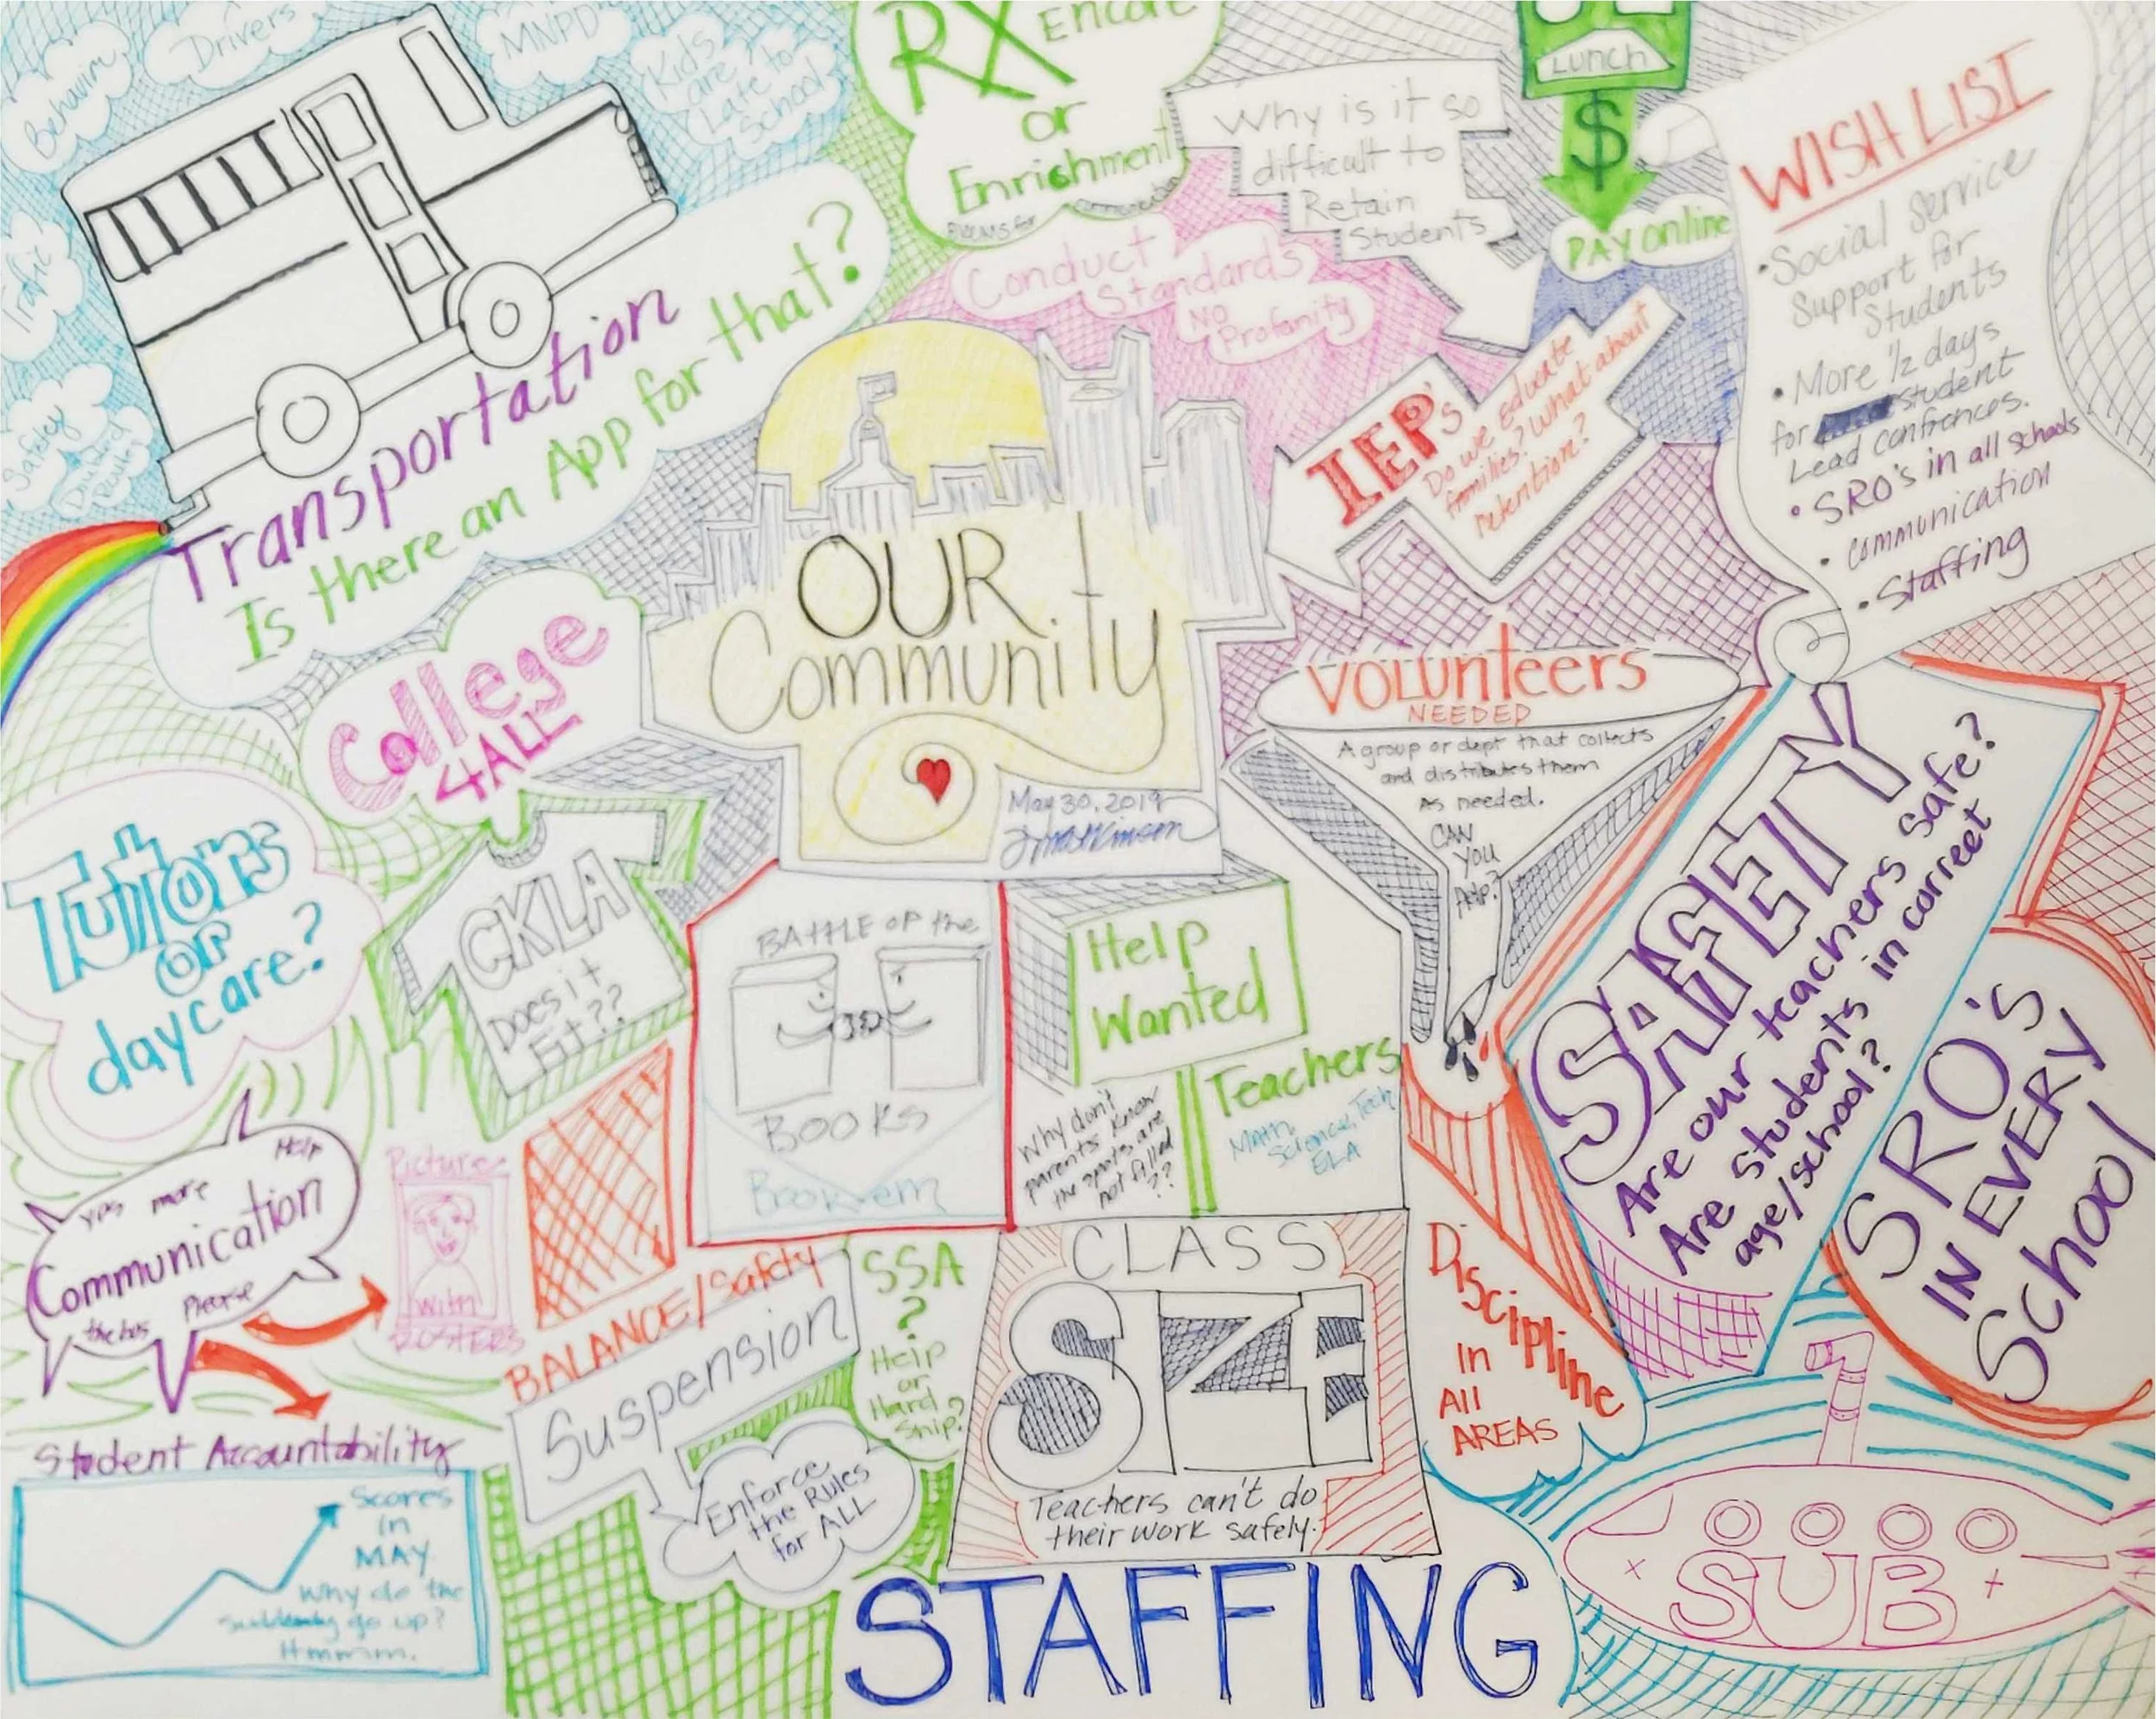 Behavior
Drivers
MNPD
Kids
are
Late to
School
Trafic
Safety
Transportation
Is there an App for that?
RX
ENCORE
or
Enrichment
Conduct
Standards
No
Profanity
Why is it so
difficult to
Retain
Students
LUNCH
$
PAY online
WISH LIST
• Social Service
Support for
Students
• More 1/2 days
for student
Lead confrences.
• SRO's in all schools
• communication
• Staffing
IEP's
Do we educate
families? What about
retention?
OUR
Community
May 30, 2019
College
4 ALL
Tutors
or
daycare?
CKLA
Does it
Fit??
BATTLE OF the
BOOKS
Help
Wanted
Teachers
Math,
Science, Tech
ELA
Why don't
parents know
the spots are
not filled
??
VOLUnteers
NEEDED
A group or dept that collects
and distributes them
as needed.
CAN
you
help?
SAFETY
Are our teachers safe?
Are students in correct
age/school?
SRO's
IN EVERY
School
Help
yes more
Communication
Please
Pictures
with
ROSTERS
BALANCE/Safety
Suspension
Enforce
the Rules
for ALL
SSA
?
Help
or
Hard
Ship?
CLASS
SIZE
Teachers can't do
their work safely.
Discipline
in
All
AREAS
Student Accountability
Scores
in
MAY.
Why do the
suddenly go up?
Hmmmm.
STAFFING
SUB